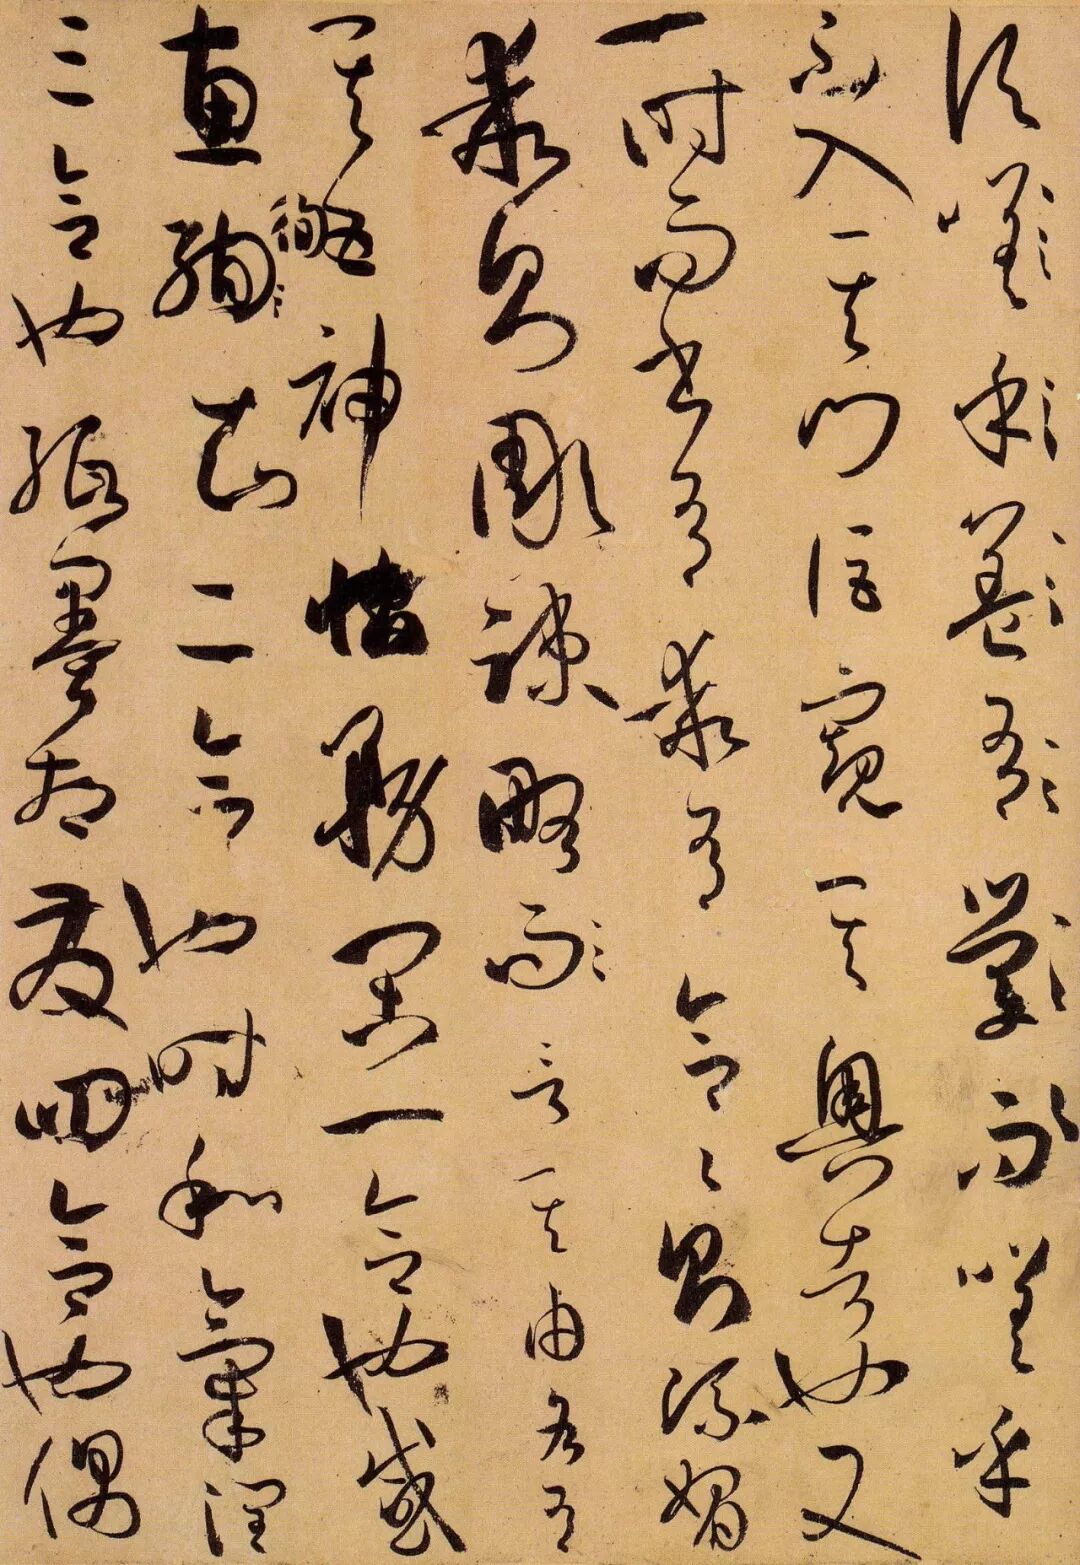 頃嗟乎蓋有學而嗟乎
不入其門詎窺其奧者也又
一時而書有乖有合合則流媚
乖則彫疎略而言其由各有
其五神怡務閑一合也感
惠徇知二合也時和氣潤
徇
三合也紙墨相發四合也偶